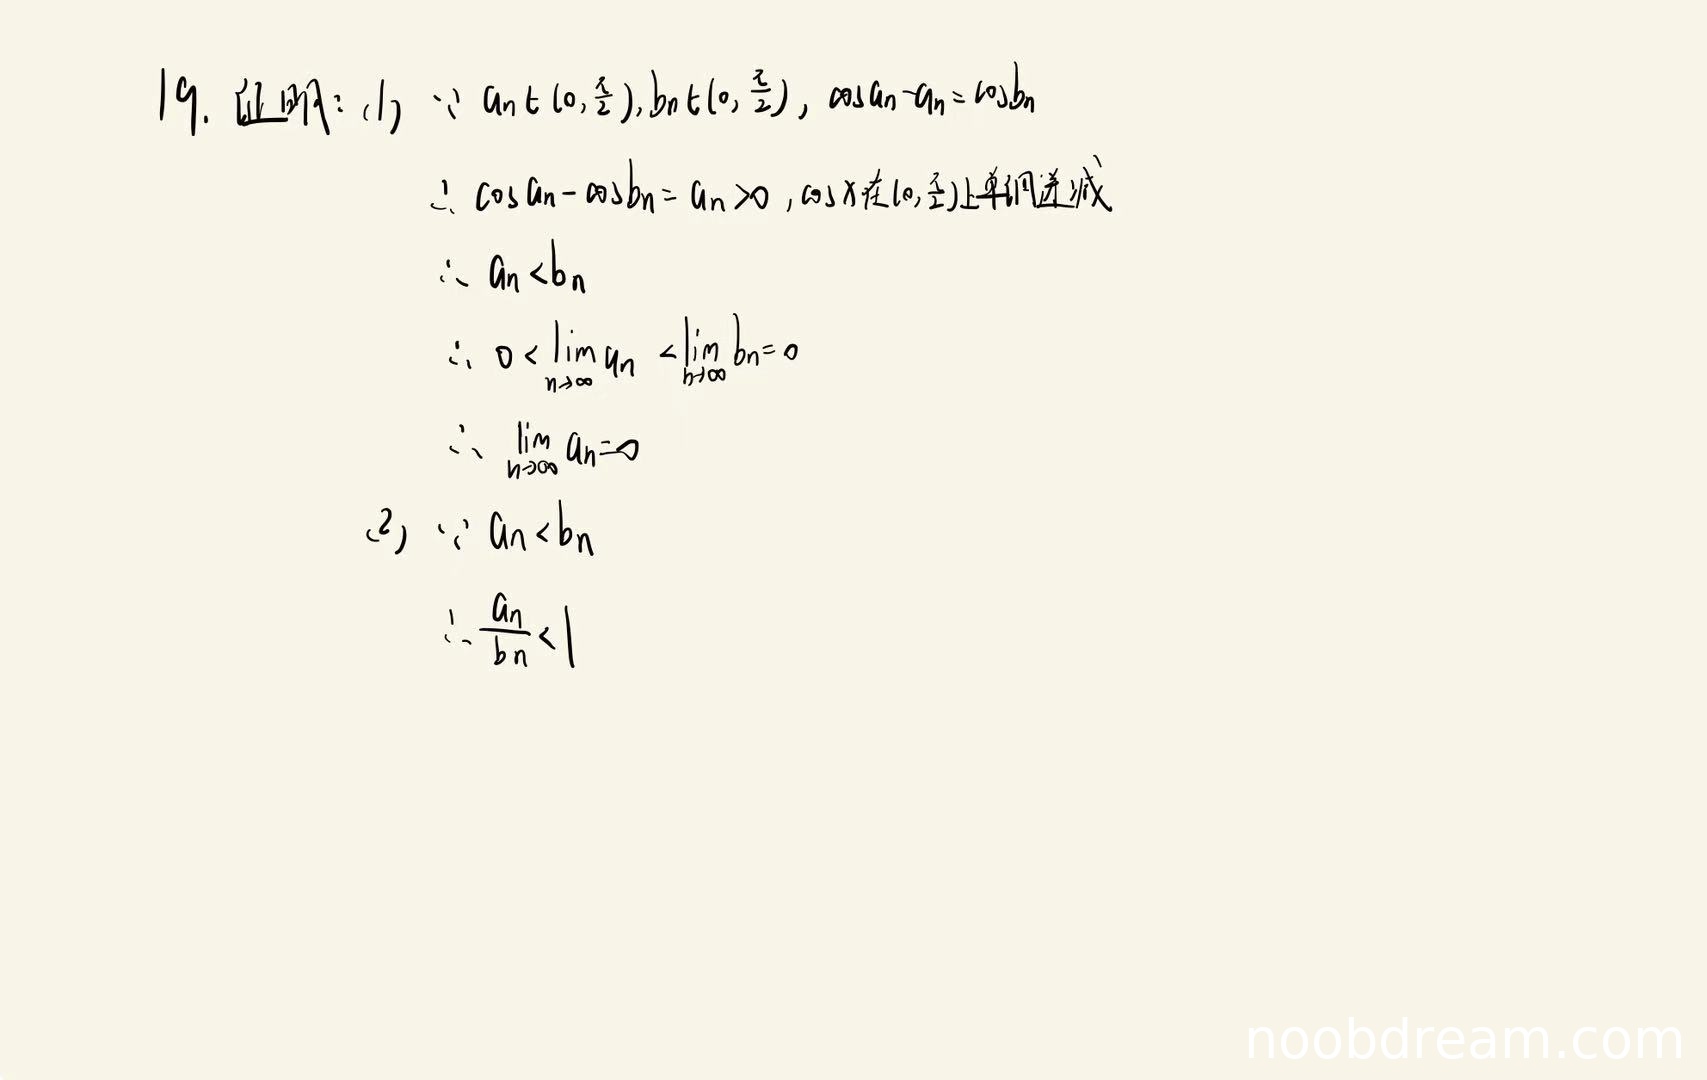 19. 证明: (1) ∵ an∈(0, π/2), bn∈(0, π/2), cosan-an=cosbn
∴ cosan-cosbn=an>0, cosx在(0, π/2)上单调递减
∴ an<bn
∴ 0<lim n→∞ an <lim n→∞ bn=0
∴ lim n→∞ an=0
(2) ∵ an<bn
∴ an/bn<1
noobdream.com